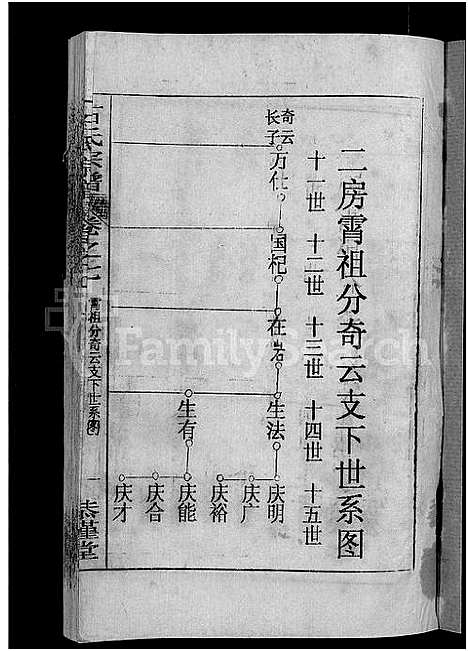 二房霄祖分奇云支下世系图
十一世 十二世 十三世 十四世 十五世
奇云
长子
万仕 国杞 在岩 生法 庆明
庆广
庆裕
生有 庆能
庆合
庆才
氏宗谱
卷之七十
霄祖分奇云支下世系图
一
恭谨堂
FamilySearch